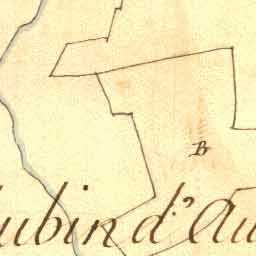 B
ubin d.º Au